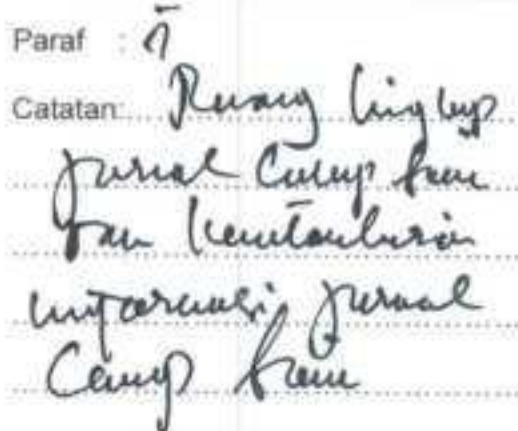 Paraf :
Catatan: Ruang lingkup
jurnal Cukup baik
dan
informasi jurnal
Cukup baik